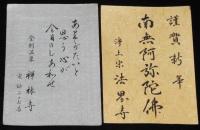 謹賀新年
南無阿弥陀佛
浄土宗 法界寺
ありがたいと
思う心が
今日のしあわせ
禅林寺